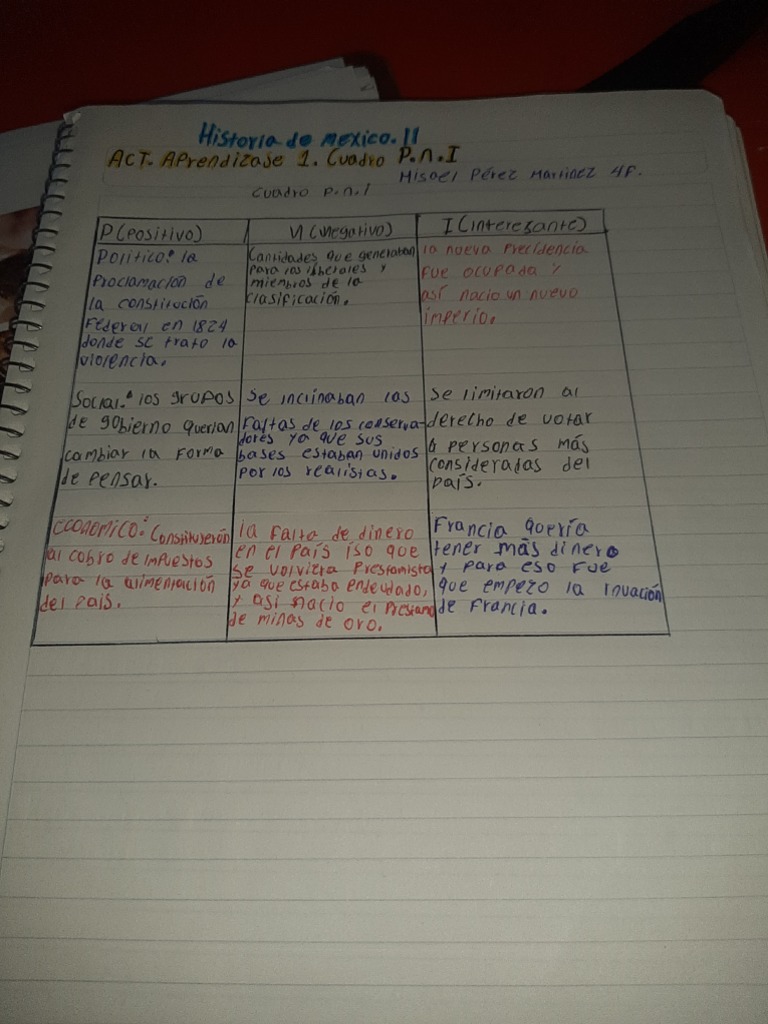 Historia de mexico. II
ACT. APrendizaje 1. Cuadro P.n.I
Misael Pérez Martinez 4F.
Cuadro P.n.I
P (Positivo)
Politico: la
Proclamación de
la constitución
Federal en 1824
donde se trato la
violencia.
N (Negativo)
Cantidades que generaban
para los liberales y
miembros de la
clasificación.
I (interesante)
la nueva Precidencia
fue ocupada y
así nacio un nuevo
imperio.
Social: los grupos
de gobierno querian
cambiar la forma
de pensar.
Se inclinaban las
Faltas de los conserva-
dores ya que sus
bases estaban unidos
por los realistas.
Se limitaron al
derecho de votar
a personas más
consideradas del
país.
Economico: Constituyerón
al cobro de impuestos
para la alimentación
del país.
la falta de dinero
en el país iso que
se volviera Prestamista
ya que estaba endeudado,
y así nacio el Prestamo
de minas de oro.
Francia quería
tener más dinero
y para eso fue
que empezo la inuación
de Francia.